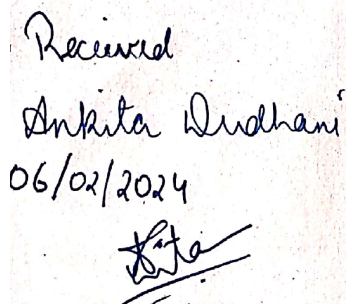 Recieved
Ankita Dudhani
06/02/2024